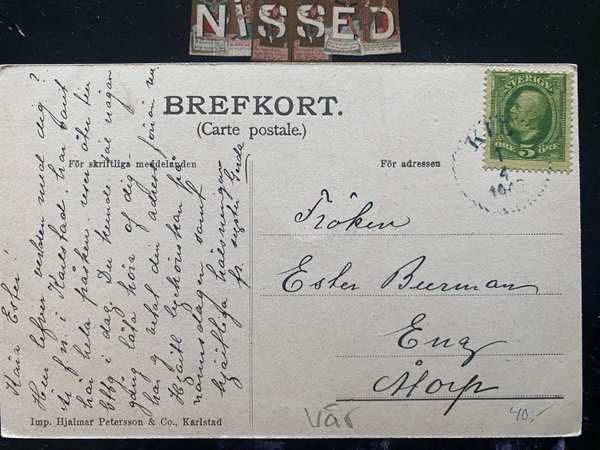 NISSED
BREFKORT.
(Carte postale.)
För skriftliga meddelanden
För adressen
SVERIGE
ÖRE 5 ÖRE
KIL
1
4
Kära Ester!
Hur lefver verlden med dig?
är f.n. i Karlstad, har varit
här hela påsken reser åter hem
i dag. Du kunde väl någon
gång låta höra af dig
har j netat din adress förrän nu
Hjärtl. lyckönskan på
namnsdagen samt
hjärtliga hälsningar
fr. syster Gerda
Fröken
Ester Buerman
Eng
Åtorp
Imp. Hjalmar Petersson & Co., Karlstad
Vår
40:-